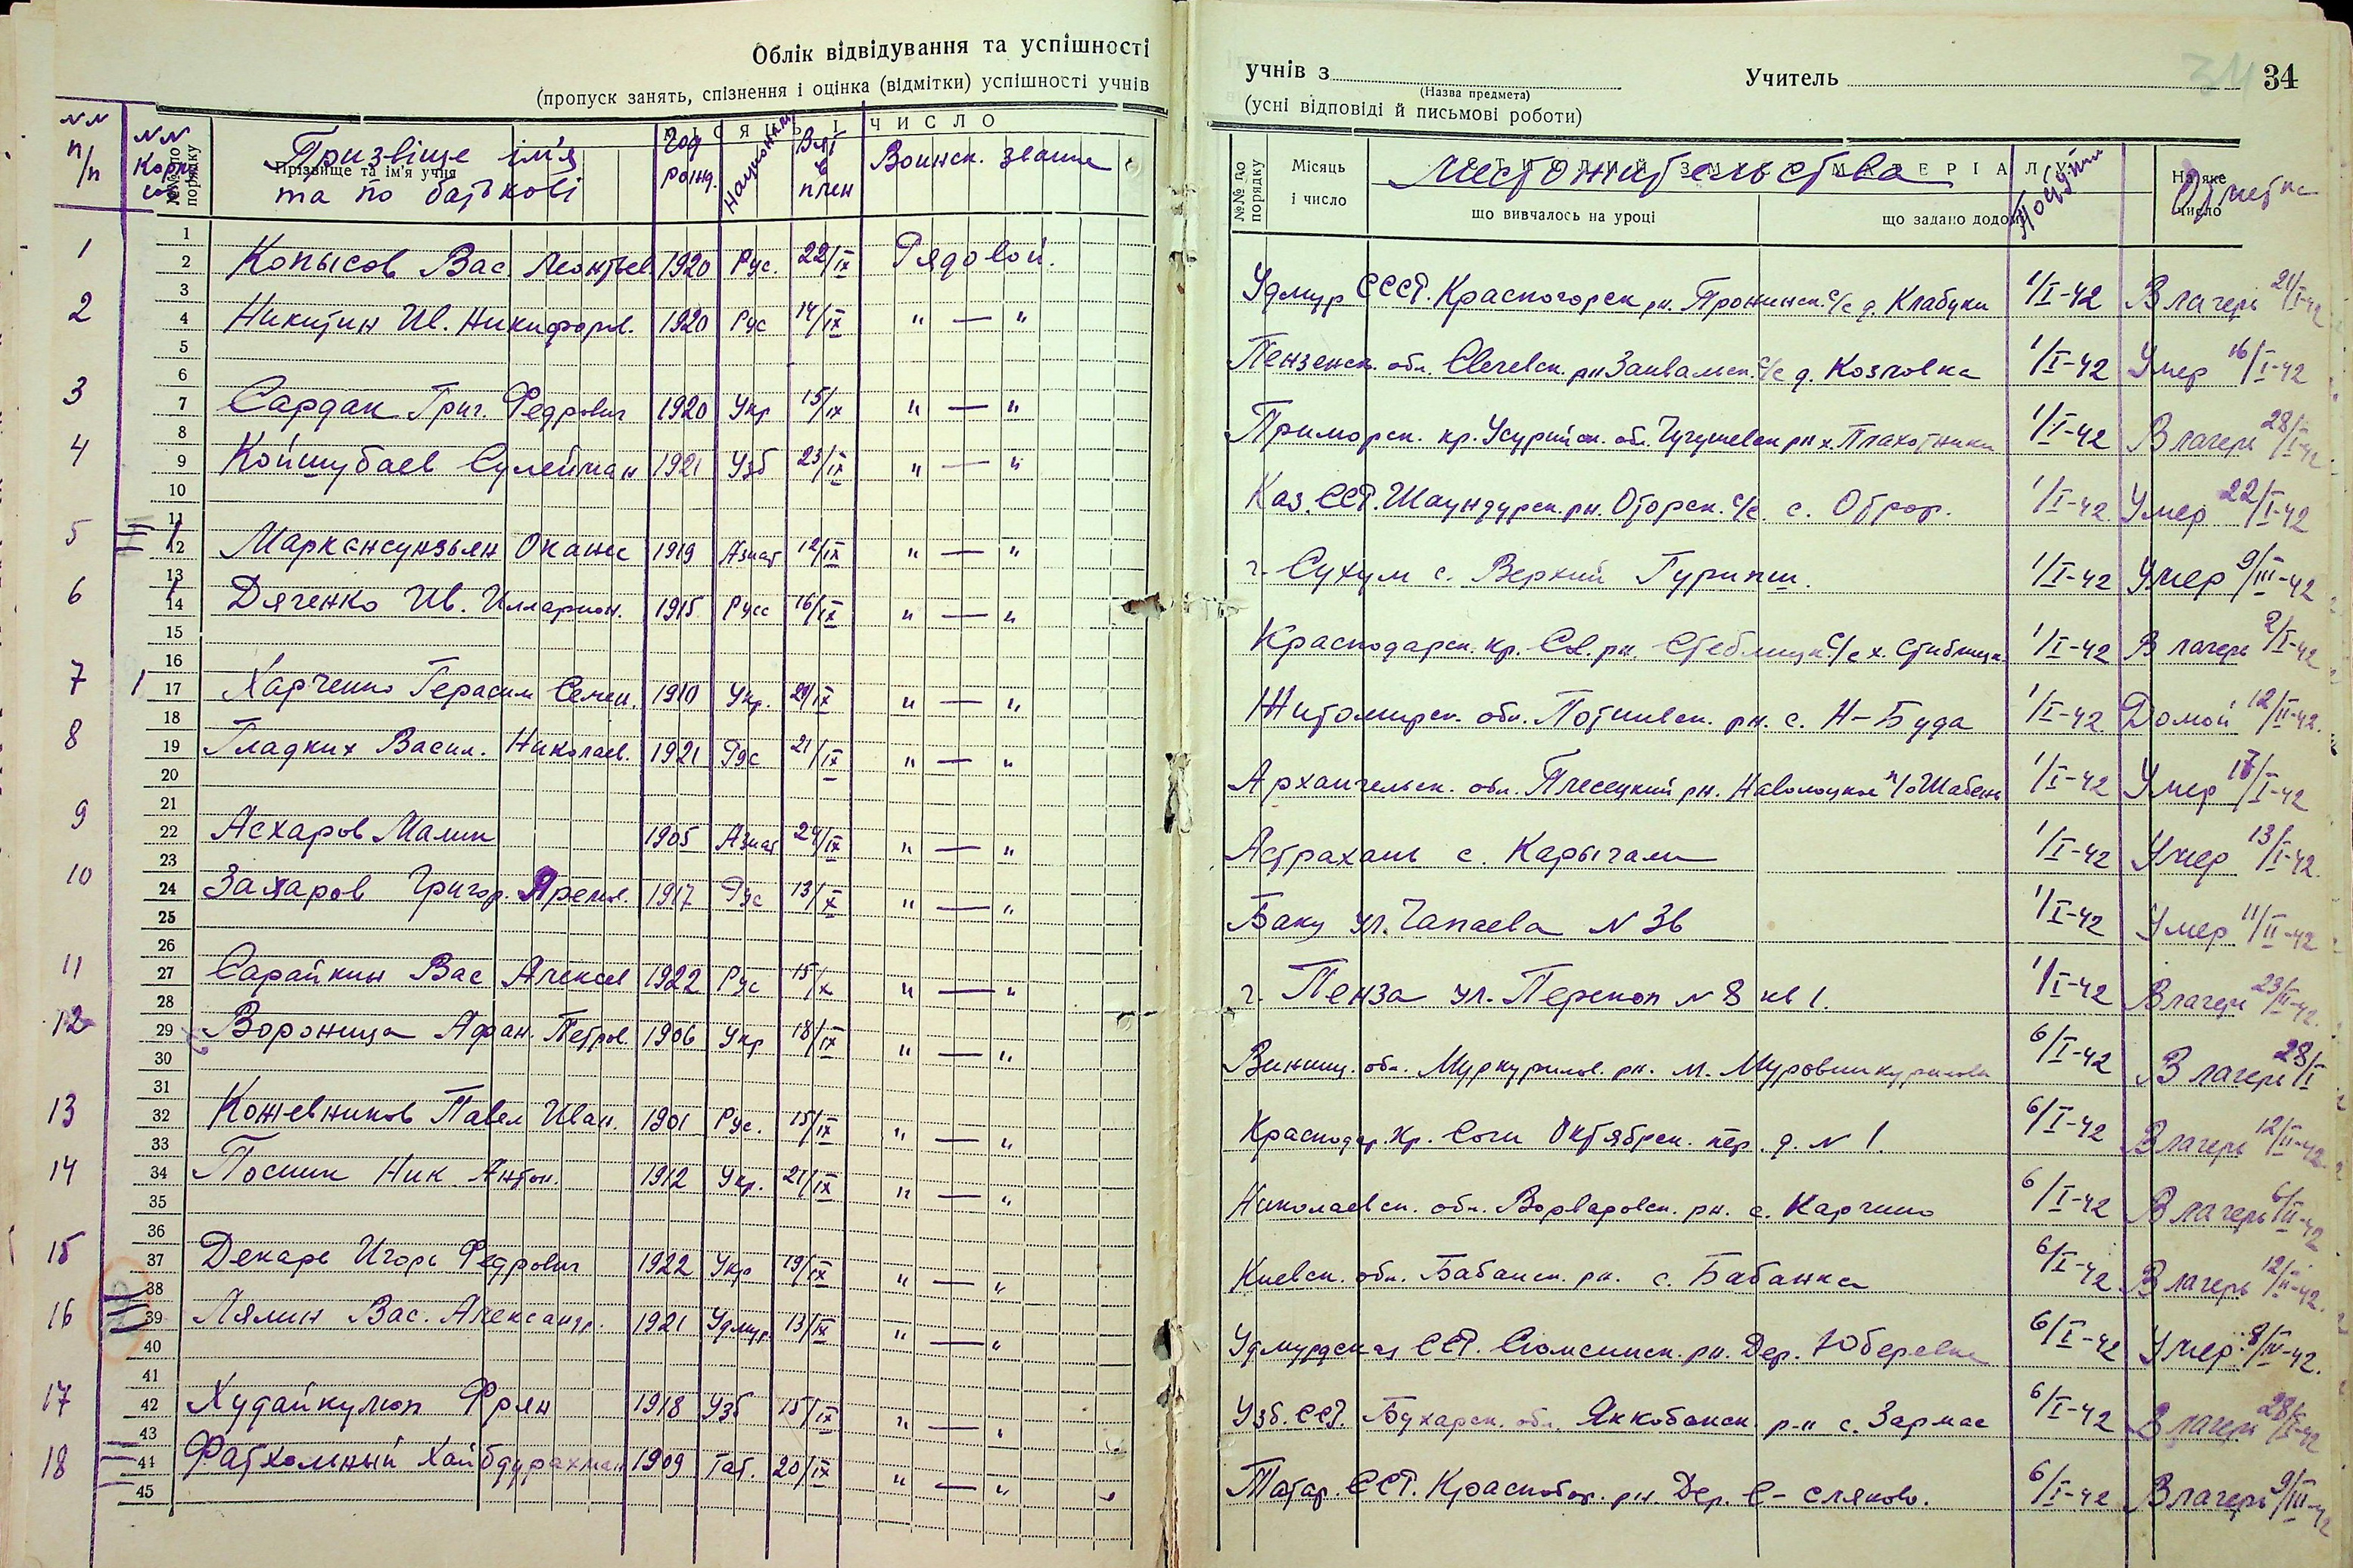 Облік відвідування та успішності
(пропуск занять, спізнення і оцінка (відмітки) успішності учнів
учнів з Учитель 34
(Назва предмета)
(усні відповіді й письмові роботи)
NN п/п NN №№ по порядку Прізвище та ім'я учня Призвіще ім'я та по батькові МІСЯЦЬ І ЧИСЛО Год рожд. Вз. в плен Воинск. звание
№№ по порядку Місяць і число Местожительства що вивчалось на уроці що задано додому На яке число Отметка
1 Копысов Вас Леонтьев 1920 Рус. 22/IX Рядовой. Удмур СССР. Красногорск рн. с/с д. Клабуки 1/I-42 В лагерь 21/I-42
2 Никитин Ив. Никифоров. 1920 Рус 14/IX " — " Пензенск. обл. рн с/с д. Козловка 1/I-42 Умер 16/I-42
3 Сардак Григ. Федрович 1920 Укр 15/IX " — " Приморск. кр. Усурийск. обл. рн х. Плахотники 1/I-42 В лагерь 28/I-42
4 Койшубаев Сулейман 1921 Узб 23/IX " — " Каз. ССР. рн. с/с. с. 1/I-42 Умер 22/I-42
5 Оканес 1919 Азиат 12/IX " — " г. Сухум с. Верхний Гурипш. 1/I-42 Умер 9/III-42
6 Дяченко Ив. Илларион. 1915 Русс 16/IX " — " Краснодарск. кр. рн. с/с х. 1/I-42 В лагерь 2/I-42
7 1 Харченко Герасим Семен. 1910 Укр. 29/IX " — " Житомирск. обл. Потиивск. рн. с. Н-Буда 1/I-42 Домой 12/II-42.
8 Гладких Васил. Николаев. 1921 Рус 21/IX " — " Архангельск. обл. Плесецкий рн. 1/I-42 Умер 17/I-42
9 Асхаров Малик 1905 Азиат 24/IX " — " Астрахань с. 1/I-42 Умер 13/I-42.
10 Захаров Григор. 1917 Рус 13/X " — " Баку ул. Чапаева N 36 1/I-42 Умер 11/II-42
11 Сарайкин Вас Алексеев 1922 Рус 15/X " — " г. Пенза ул. Перекоп N 8 кв 1. 1/I-42 В лагерь 23/II-42.
12 Вороница Афан. Петров. 1906 Укр 18/IX " — " Винниц. обл. рн. м. 6/I-42 В лагерь 28/I
13 Кожевников Павел Иван. 1901 Рус. 15/IX " — " Краснодар. кр. Сочи Октябрск. пер. д. N 1. 6/I-42 В лагерь 12/II-42
14 Посник Ник Антон. 1912 Укр. 21/IX " — " Николаевск. обл. Ворваровск. рн. с. 6/I-42 В лагерь 6/II-42
15 Декарь Игорь Федрович 1922 Укр 19/IX " — " Киевск. обл. Бабанск. рн. с. Бабанка 6/I-42 В лагерь 12/II-42.
16 Лялин Вас. Александр. 1921 Удмур. 13/IX " — " Удмурдская ССР. рн. Дер. 6/I-42 Умер 8/IV-42.
17 Худайкулюп Фрян 1918 Узб 15/IX " — " Узб. ССР. Бухарск. обл. Яккобанск р-н с. Зармас 6/I-42 В лагерь 28/I-42
18 1909 Тат. 20/IX " — " Татар. ССР. Краснобор. рн. Дер. 6/I-42 В лагерь 9/III-42